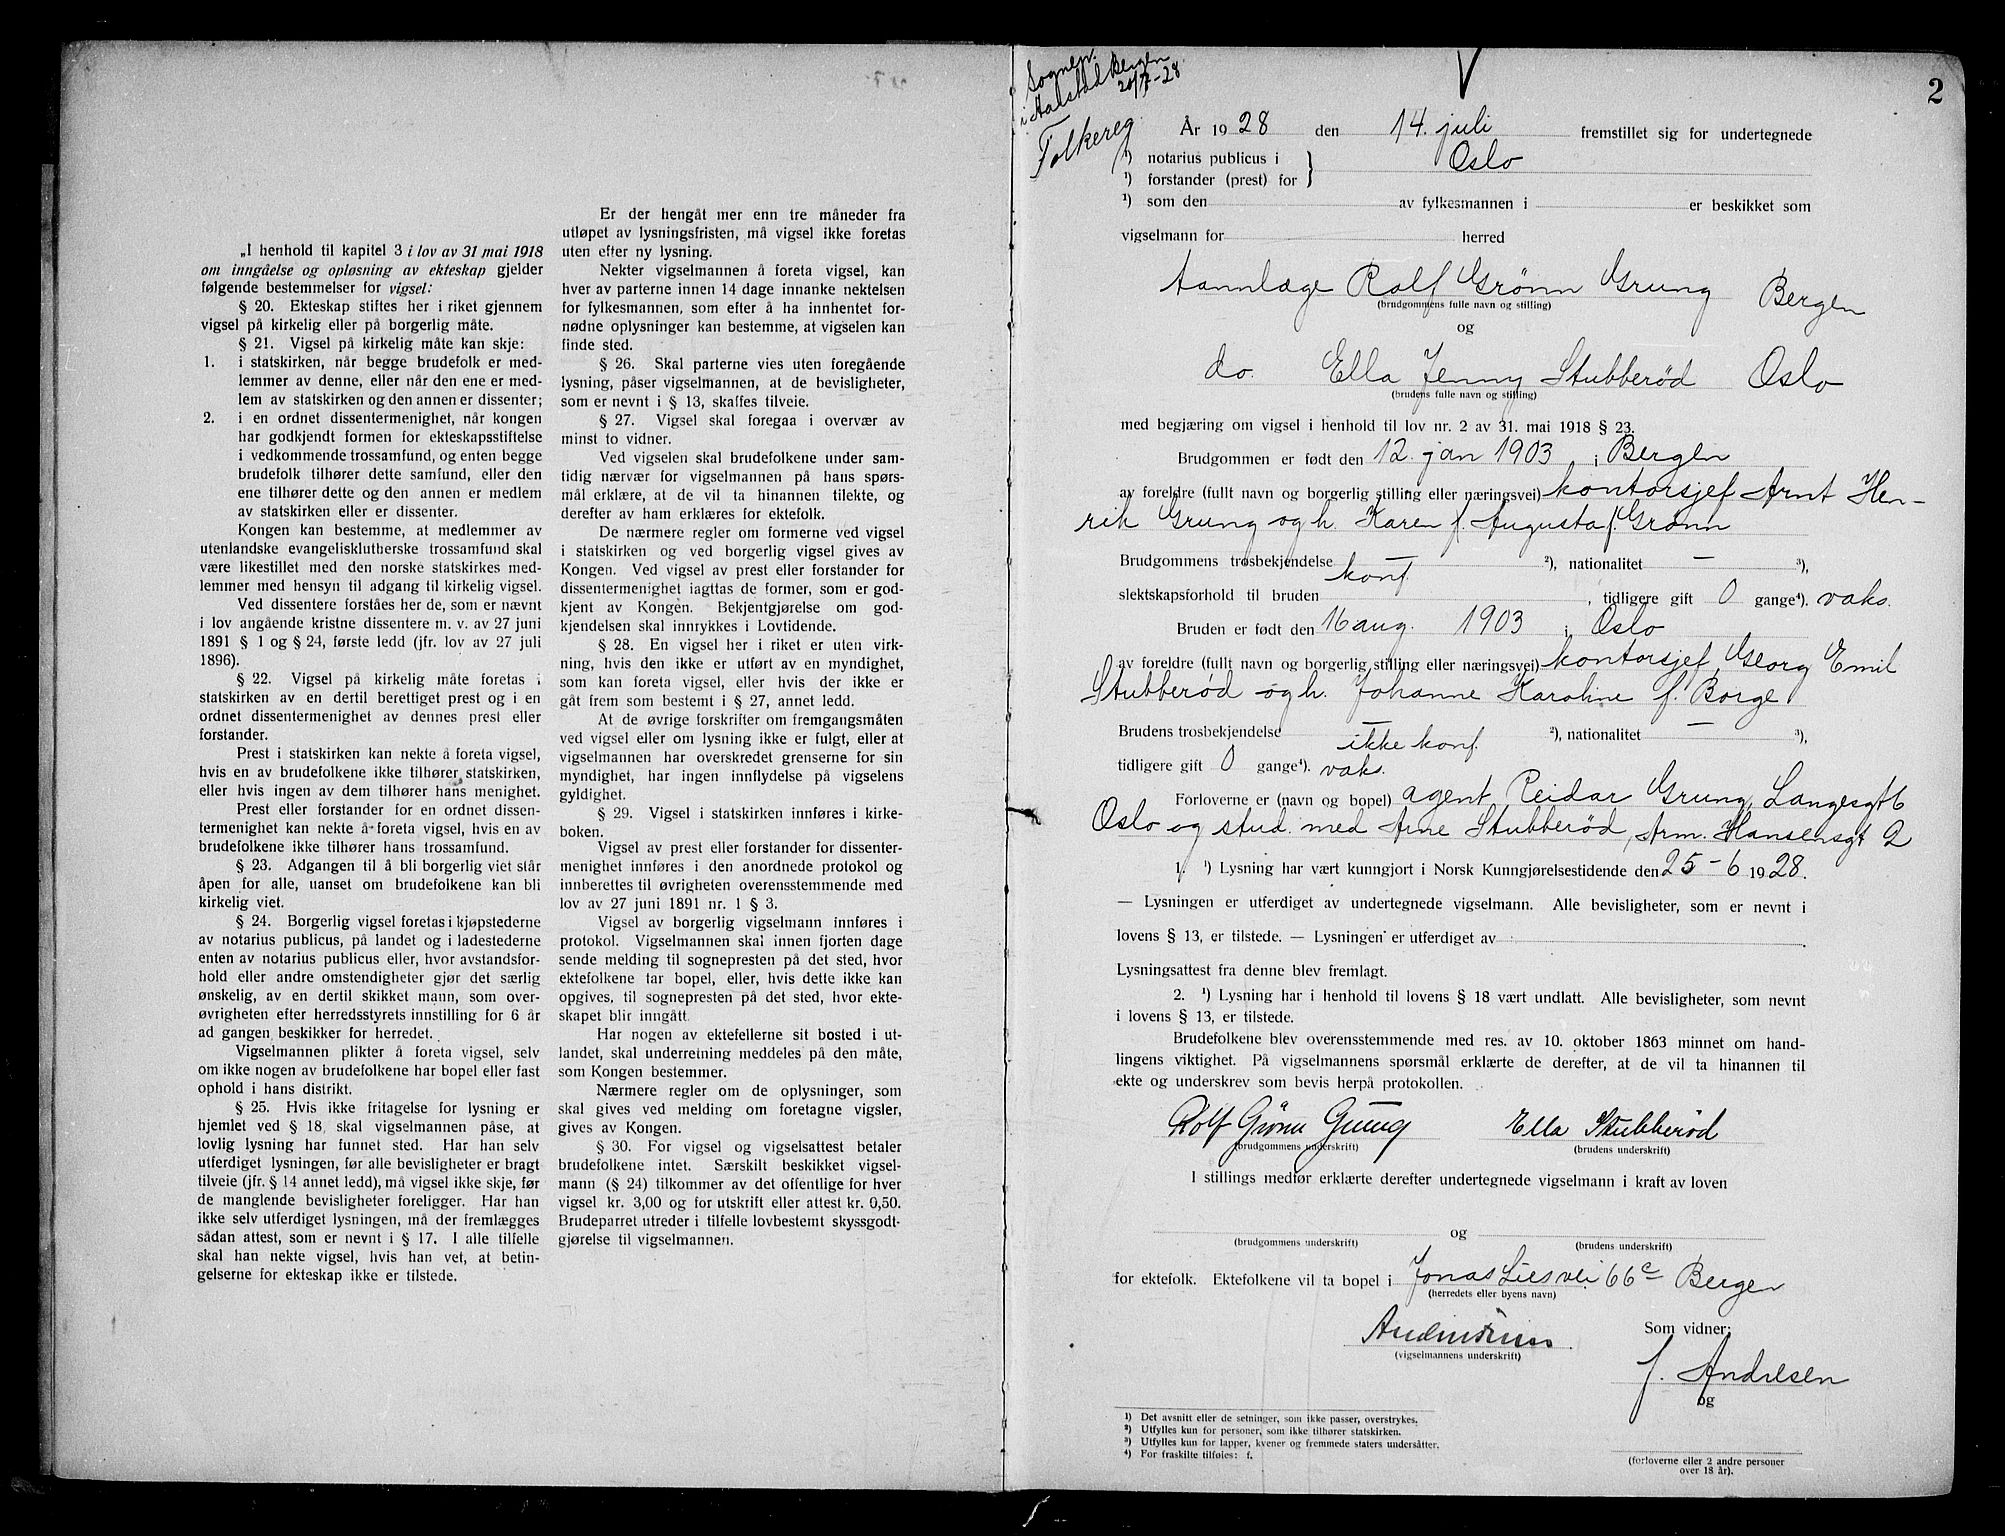 „I henhold til kapitel 3 i lov av 31 mai 1918
om inngåelse og opløsning av ekteskap gjelder
følgende bestemmelser for vigsel:
§ 20. Ekteskap stiftes her i riket gjennem
vigsel på kirkelig eller på borgerlig måte.
§ 21. Vigsel på kirkelig måte kan skje:
1. i statskirken, når begge brudefolk er med-
lemmer av denne, eller når den ene er med-
lem av statskirken og den annen er dissenter;
2. i en ordnet dissentermenighet, når kongen
har godkjendt formen for ekteskapsstiftelse
i vedkommende trossamfund, og enten begge
brudefolk tilhører dette samfund, eller den
ene tilhører dette og den annen er medlem
av statskirken eller er dissenter.
Kongen kan bestemme, at medlemmer av
utenlandske evangeliskluthersk trossamfund skal
være likestillet med den norske statskirkes med-
lemmer med hensyn til adgang til kirkelig vigsel.
Ved dissentere forståes her de, som er nævnt
i lov angående kristne dissentere m. v. av 27 juni
1891 § 1 og § 24, første ledd (jfr. lov av 27 juli
1896).
§ 22. Vigsel på kirkelig måte foretas i
statskirken av en dertil berettiget prest og i en
ordnet dissentermenighet av dennes prest eller
forstander.
Prest i statskirken kan nekte å foreta vigsel,
hvis en av brudefolkene ikke tilhører statskirken,
eller hvis ingen av dem tilhører hans menighet.
Prest eller forstander for en ordnet dissen-
termenighet kan nekte å foreta vigsel, hvis en av
brudefolkene ikke tilhører hans trossamfund.
§ 23. Adgangen til å bli borgerlig viet står
åpen for alle, uanset om brudefolkene kan bli
kirkelig viet.
§ 24. Borgerlig vigsel foretas i kjøpstederne
av notarius publicus, på landet og i ladestederne
enten av notarius publicus eller, hvor avstandsfor-
hold eller andre omstendigheter gjør det særlig
ønskelig, av en dertil skikket mann, som over-
øvrigheten efter herredsstyrets innstilling for 6 år
ad gangen beskikker for herredet.
Vigselmannen plikter å foreta vigsel, selv
om ikke nogen av brudefolkene har bopel eller fast
ophold i hans distrikt.
§ 25. Hvis ikke fritagelse for lysning er
hjemlet ved § 18, skal vigselmannen påse, at
lovlig lysning har funnet sted. Har han selv
utferdiget lysningen, før alle bevisligheter er bragt
tilveie (jfr. § 14 annet ledd), må vigsel ikke skje, før
de manglende bevisligheter foreligger. Har han
ikke selv utferdiget lysningen, må der fremlægges
sådan attest, som er nevnt i § 17. I alle tilfelle
skal han nekte vigsel, hvis han vet, at betin-
gelserne for ekteskap ikke er tilstede.
Er der hengåt mer enn tre måneder fra
utløpet av lysningsfristen, må vigsel ikke foretas
uten efter ny lysning.
Nekter vigselmannen å foreta vigsel, kan
hver av parterne innen 14 dage innanke nektelsen
for fylkesmannen, som efter å ha innhentet for-
nødne oplysninger kan bestemme, at vigselen kan
finde sted.
§ 26. Skal parterne vies uten foregående
lysning, påser vigselmannen, at de bevisligheter,
som er nevnt i § 13, skaffes tilveie.
§ 27. Vigsel skal foregaa i overvær av
minst to vidner.
Ved vigselen skal brudefolkene under sam-
tidig nærvær for vigselmannen på hans spørs-
mål erklære, at de vil ta hinannen tilekte, og
derefter av ham erklæres for ektefolk.
De nærmere regler om formerne ved vigsel
i statskirken og ved borgerlig vigsel gives av
Kongen. Ved vigsel av prest eller forstander for
dissentermenighet iagttas de former, som er god-
kjent av Kongen. Bekjentgjørelse om god-
kjendelsen skal innrykkes i Lovtidende.
§ 28. En vigsel her i riket er uten virk-
ning, hvis den ikke er utført av en myndighet,
som kan foreta vigsel, eller hvis der ikke er
gåt frem som bestemt i § 27, annet ledd.
At de øvrige forskrifter om fremgangsmåten
ved vigsel eller om lysning ikke er fulgt, eller at
vigselmannen har overskredet grenserne for sin
myndighet, har ingen innflydelse på vigselens
gyldighet.
§ 29. Vigsel i statskirken innføres i kirke-
boken.
Vigsel av prest eller forstander for dissenter-
menighet innføres i den anordnede protokol og
innberettes til øvrigheten overensstemmende med
lov av 27 juni 1891 nr. 1 § 3.
Vigsel av borgerlig vigselmann innføres i
protokol. Vigselmannen skal innen fjorten dage
sende melding til sognepresten på det sted, hvor
ektefolkene tar bopel, eller, hvis dette ikke kan
opgives, til sognepresten på det sted, hvor ekte-
skapet blir inngått.
Har nogen av ektefellerne sit bosted i ut-
landet, skal underretning meddeles på den måte,
som Kongen bestemmer.
Nærmere regler om de oplysninger, som
skal gives ved melding om foretagne vigsler,
gives av Kongen.
§ 30. For vigsel og vigselsattest betaler
brudefolkene intet. Særskilt beskikket vigsel-
mann (§ 24) tilkommer av det offentlige for hver
vigsel kr. 3,00 og for utskrift eller attest kr. 0,50.
Brudeparret utreder i tilfelle lovbestemt skyssgodt-
gjørelse til vigselmannen.
2
Sognepr.
i Aarstad Bergen
20/7-28
Folkereg
År 1928 den 14. juli fremstillet sig for undertegnede
¹) notarius publicus i Oslo
¹) forstander (prest) for
¹) som den av fylkesmannen i er beskikket som
vigselmann for herred
Tannlæge Rolf Grønn Grung Bergen
(brudgommens fulle navn og stilling)
og
do. Ella Jenny Stubberød Oslo
(brudens fulle navn og stilling)
med begjæring om vigsel i henhold til lov nr. 2 av 31. mai 1918 § 23.
Brudgommen er født den 12. jan 1903 i Bergen
av foreldre (fullt navn og borgerlig stilling eller næringsvei) kontorsjef Arnt Hen-
rik Grung og h. Karen f. Augusta f. Grønn
Brudgommens trosbekjendelse — ²), nationalitet — ³),
slektskapsforhold til bruden konf. , tidligere gift 0 gange⁴). vaks.
Bruden er født den 16 aug. 1903 i Oslo
av foreldre (fullt navn og borgerlig stilling eller næringsvei) kontorsjef Georg Emil
Stubberød og h. Johanne Karoline f. Borge
Brudens trosbekjendelse — ²), nationalitet — ³),
ikke konf.
tidligere gift 0 gange⁴). vaks.
Forloverne er (navn og bopel) agent Reidar Grung, Langesgt 6
Oslo og stud. med Arne Stubberød, Arm. Hansensgt 2
1. ¹) Lysning har vært kunngjort i Norsk Kunngjørelsestidende den 25-6 1928.
— Lysningen er utferdiget av undertegnede vigselmann. Alle bevisligheter, som er nevnt i
lovens § 13, er tilstede. — Lysningen er utferdiget av
Lysningsattest fra denne blev fremlagt.
2. ¹) Lysning har i henhold til lovens § 18 vært undlatt. Alle bevisligheter, som nevnt
i lovens § 13, er tilstede.
Brudefolkene blev overensstemmende med res. av 10. oktober 1863 minnet om hand-
lingens viktighet. På vigselmannens spørsmål erklærte de derefter, at de vil ta hinannen til
ekte og underskrev som bevis herpå protokollen.
Rolf Grønn Grung Ella Stubberød
(brudgommens underskrift) (brudens underskrift)
I stillings medfør erklærte derefter undertegnede vigselmann i kraft av loven
og
(brudgommens underskrift) (brudens underskrift)
for ektefolk. Ektefolkene vil ta bopel i Jonas Liesvei 66c Bergen
(herredets eller byens navn)
Som vidner:
(vigselmannens underskrift)
J. Andresen
og
¹) Det avsnitt eller de setninger, som ikke passer, overstrykes.
²) Utfylles kun for personer, som ikke tilhører statskirken.
³) Utfylles kun for lapper, kvener og fremmede staters undersåtter.
⁴) For fraskilte tilføies: f.
(forloverne eller 2 andre personer
over 18 år).